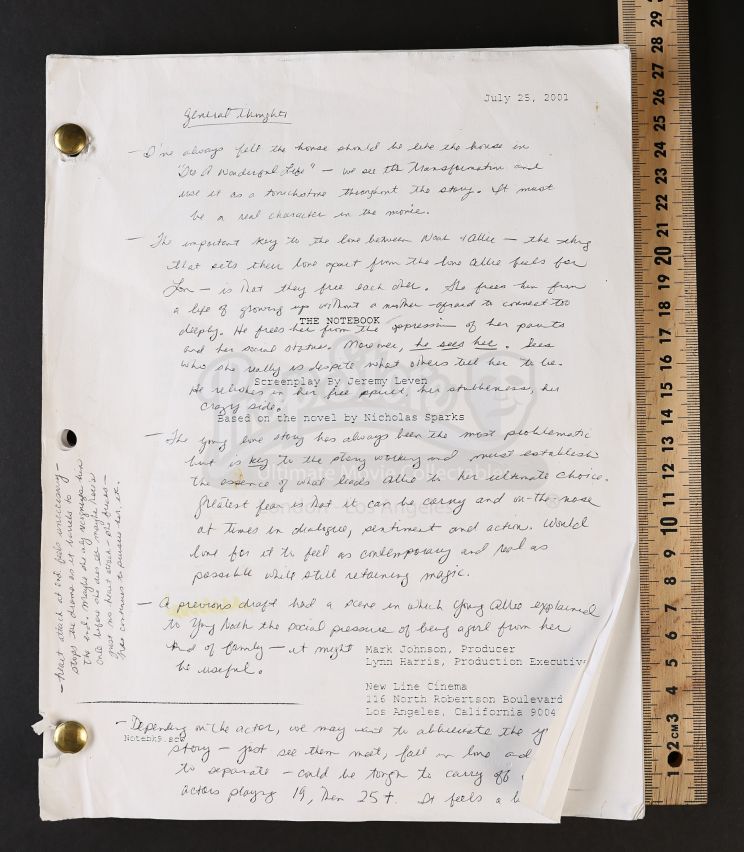 July 25, 2001
General Thoughts
- I've always felt the house should be like the house in
"It's A Wonderful Life" - we see its transformation and
use it as a touchstone throughout the story. It must
be a real character in the movie.
- The important key to the love between Noah & Allie - the thing
that sets their love apart from the love Allie feels for
Lon - is that they free each other. She frees him from
a life of growing up without a mother - afraid to connect too
THE NOTEBOOK
deeply. He frees her from the oppression of her parents
and her social status. Moreover, he sees her. Sees
who she really is despite what others tell her to be.
Screenplay By Jeremy Leven
He relishes in her free spirit, her stubbornness, her
crazy side.
Based on the novel by Nicholas Sparks
- The young love story has always been the most problematic
but is key to the story working and must establish
the essence of what leads Allie to her ultimate choice.
Ultimate Movie Collectables
Greatest fear is that it can be corny and on-the-nose
London Los Angeles
at times in dialogue, sentiment and action. Would
love for it to feel as contemporary and real as
possible while still retaining magic.
- A previous draft had a scene in which Young Allie explained
to Yng Noah the social pressure of being a girl from her
kind of family - it might
be useful.
Mark Johnson, Producer
Lynn Harris, Production Executive
New Line Cinema
116 North Robertson Boulevard
Los Angeles, California 9004
- Depending on the actor, we may want to abbreviate the y
Notebk5.scw
story - just see them meet, fall in love and
to separate - could be tough to carry off
actors playing 19, then 25+. It feels a
- heart attack at end feels unnecessary -
stops the drama as it travels to
the end. Maybe she only recognizes him
just no heart attack - she
Noah continues to pursue her, etc.
29
28
27
26
25
24
23
22
21
20
19
18
17
16
15
14
13
12
11
10
9
8
7
6
5
4
3
2 CM
1